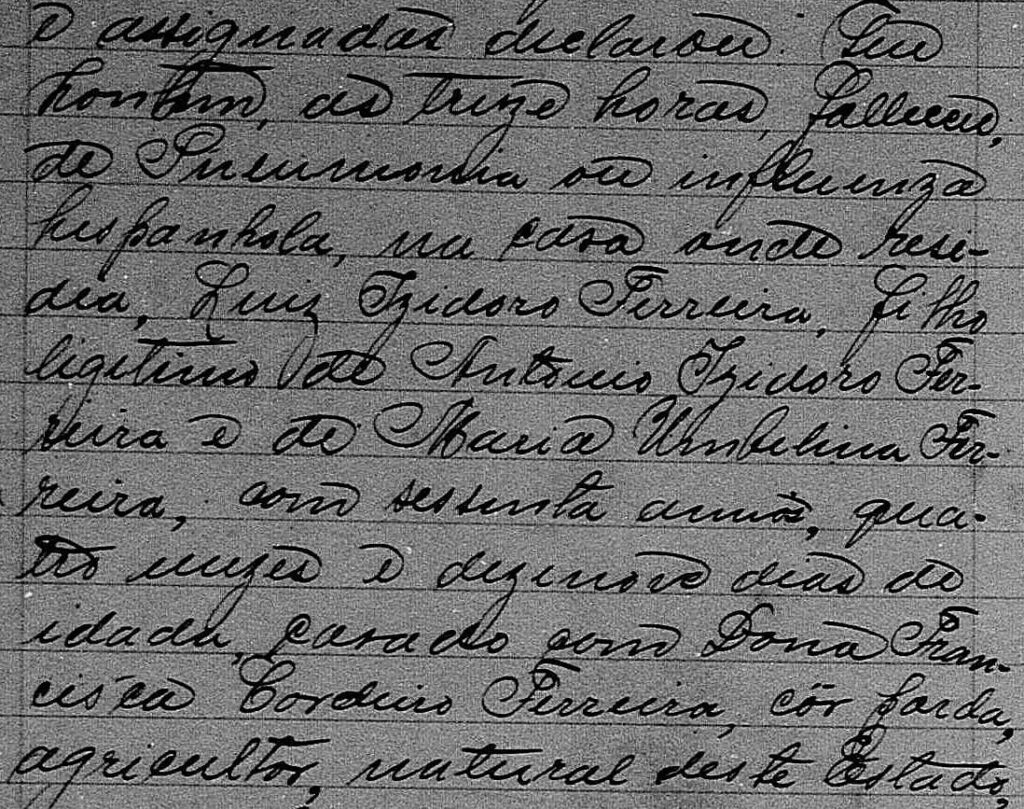 e assignadas declarou: Que
hontem, as treze horas, falleceu,
de Pneumonia ou influenza
hespanhola, na casa onde resi-
dia, Luiz Izidoro Ferreira, filho
ligetimo de Antonio Izidoro Fer-
reira e de Maria Umbelina Fer-
reira, com sessenta annos, qua-
tro mezes e dezenove dias de
idade, casado com Dona Fran-
cisca Cordeiro Ferreira, côr parda,
agricultor, natural deste Estado,